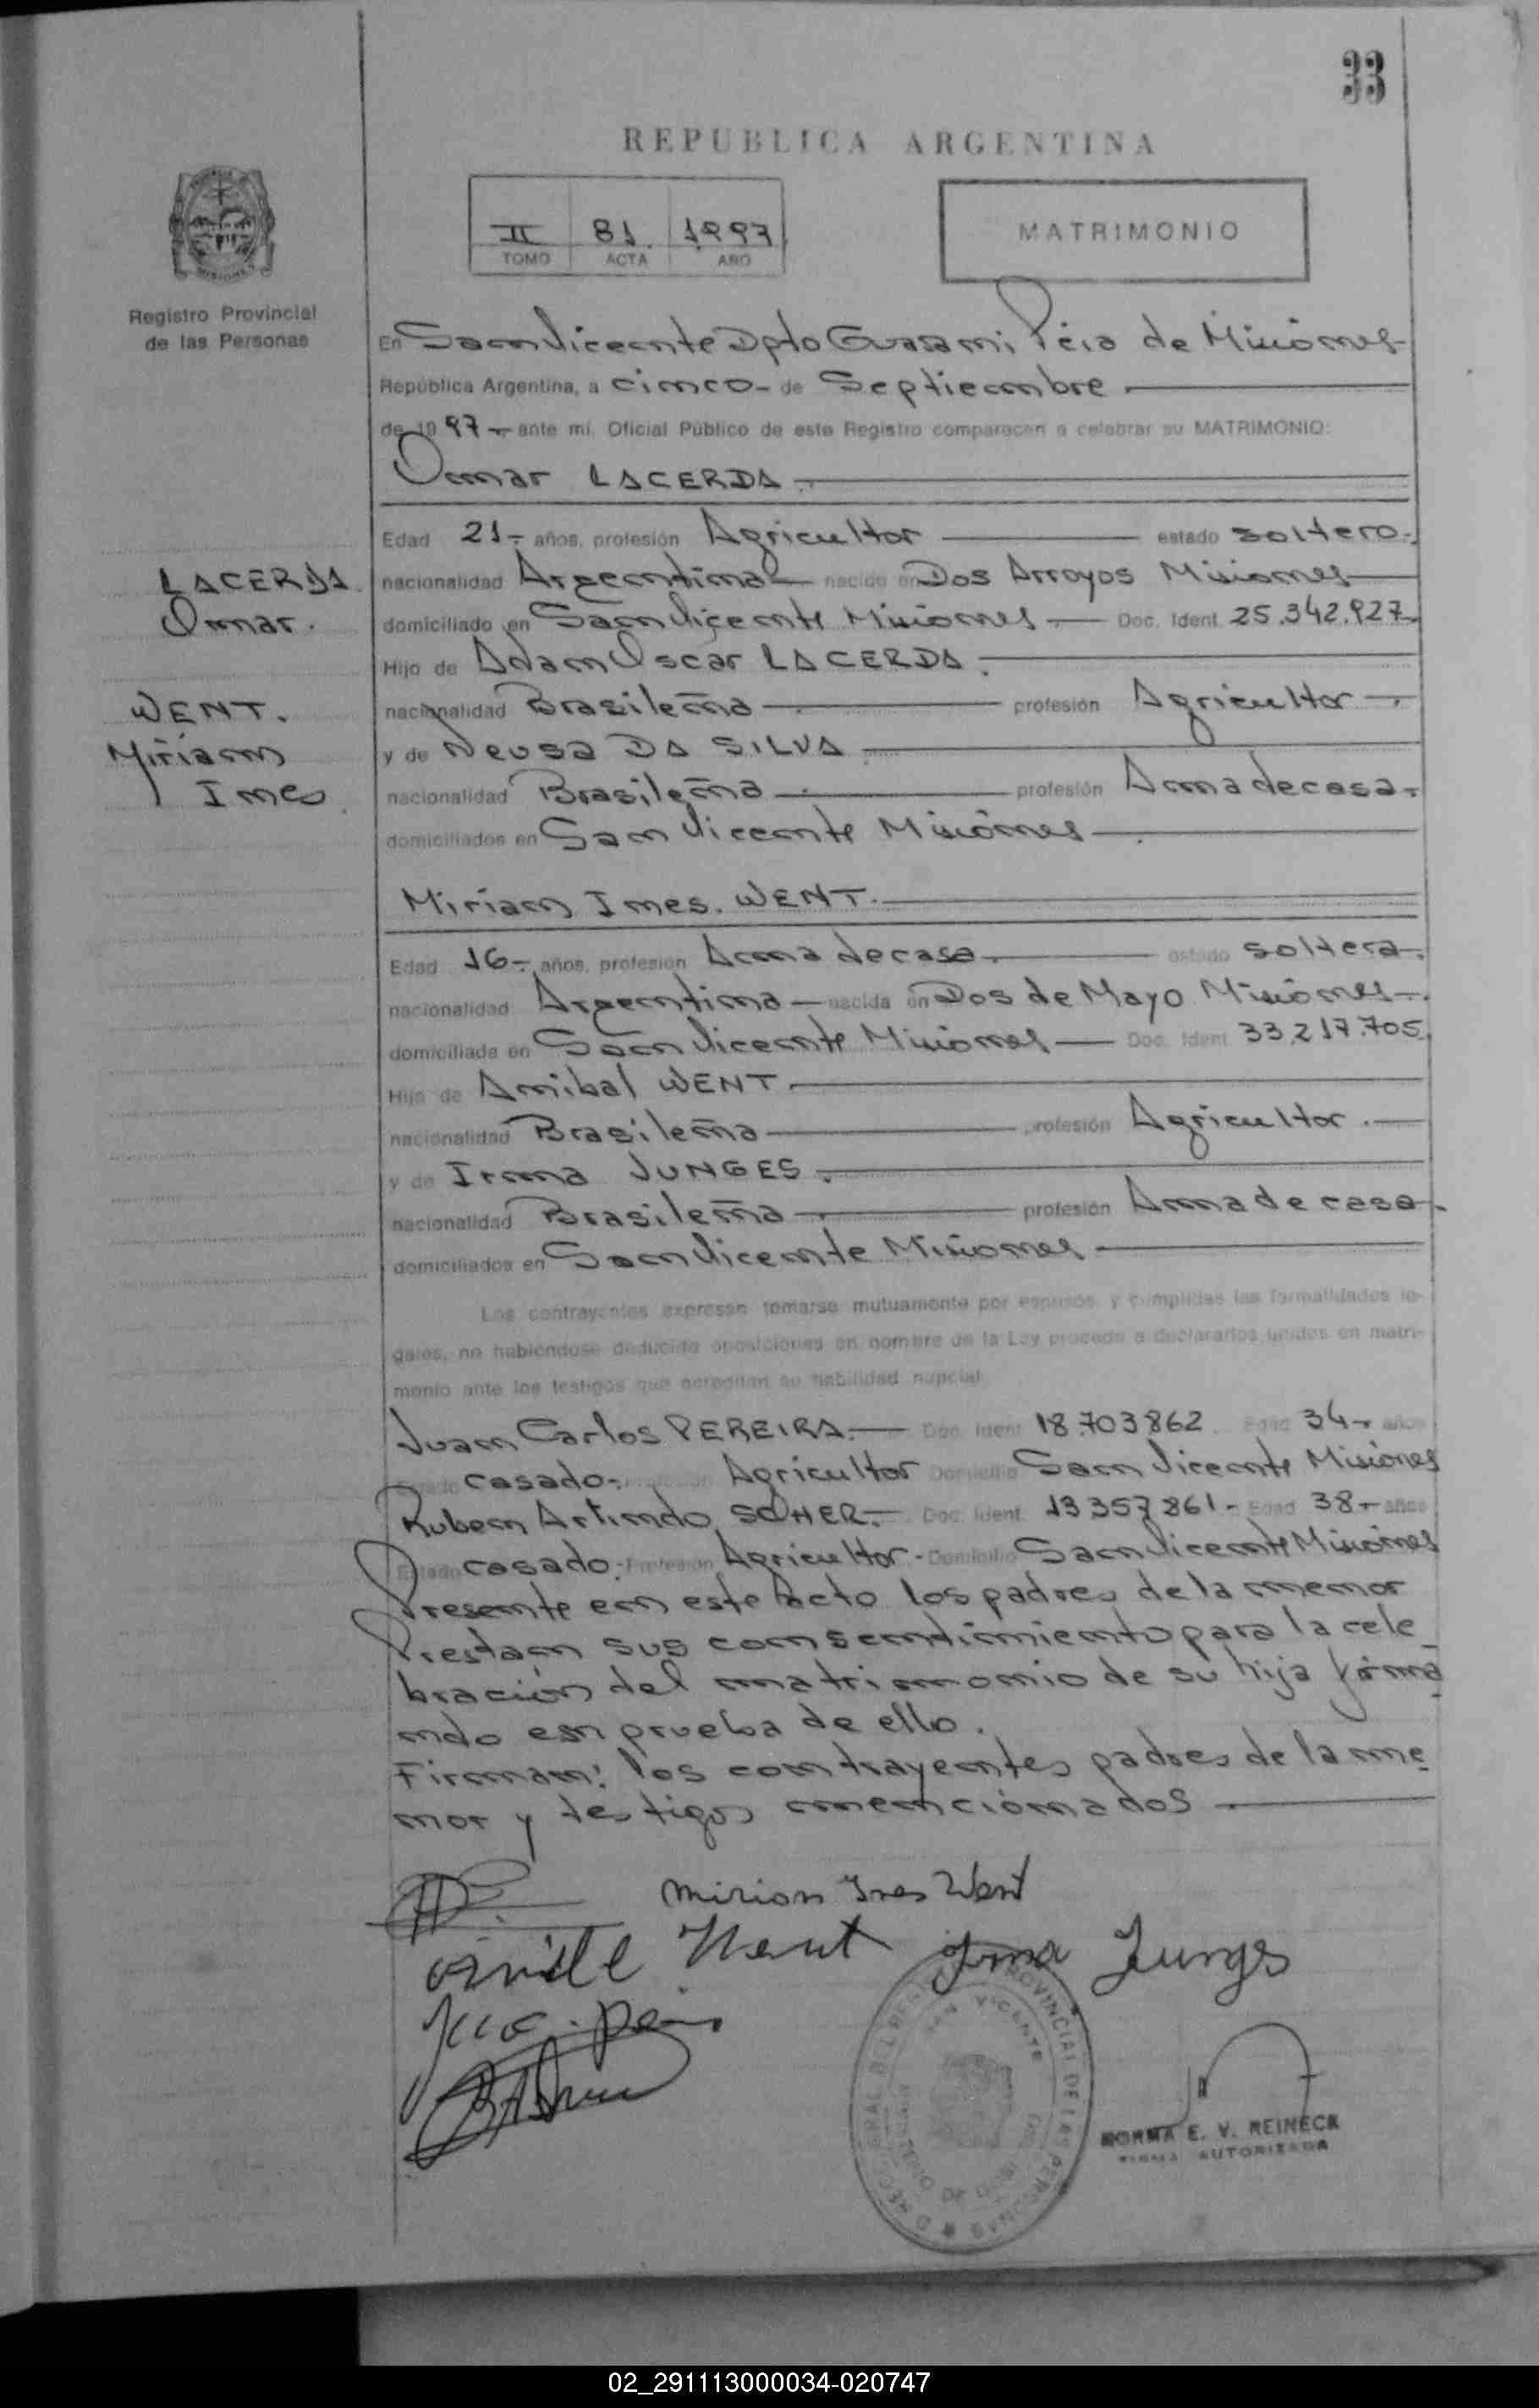 33
REPUBLICA ARGENTINA
II 81 1997
TOMO ACTA AÑO
MATRIMONIO
Registro Provincial
de las Personas
En San Vicente Dpto Guarani Pcia de Misiones
República Argentina, a cinco- de Septiembre
de 1997 - ante mí, Oficial Público de este Registro comparecen a celebrar su MATRIMONIO:
Omar LACERDA
Edad 21- años, profesión Agricultor estado soltero.
LACERDA
Omar.
nacionalidad Argentina nacido en Dos Arroyos Misiones
domiciliado en San Vicente Misiones Doc. Ident. 25.342.927
Hijo de Adam Oscar LACERDA.
WENT.
Miriam
Ines
nacionalidad Brasileña profesión Agricultor
y de Neusa DA SILVA
nacionalidad Brasileña profesión Ama de casa.
domiciliados en San Vicente Misiones
Miriam Ines. WENT.
Edad 16- años, profesión Ama de casa. estado soltera.
nacionalidad Argentina nacida en Dos de Mayo Misiones
domiciliada en San Vicente Misiones Doc. Ident. 33.217.705
Hija de Anibal WENT.
nacionalidad Brasileña profesión Agricultor.
y de Irma JUNGES.
nacionalidad Brasileña profesión Ama de casa.
domiciliados en San Vicente Misiones
Los contrayentes expresan tomarse mutuamente por esposos, y cumplidas las formalidades le-
gales, no habiéndose deducido oposiciones en nombre de la Ley procedo a declararlos unidos en matri-
monio ante los testigos que acreditan su habilidad nupcial
Juan Carlos PEREIRA. Doc. Ident. 18.703862. Edad 34- años
Estado casado. Agricultor Domicilio San Vicente Misiones
Ruben Arlindo Doc. Ident. 13357861- Edad 38- años
Estado casado. Profesión Agricultor- Domicilio San Vicente Misiones
Presente en este Acto los padres de la menor
Prestan sus consentimiento para la cele
bración del matrimonio de su hija firma
ndo en prueba de ello.
Firman: los contrayentes padres de la me
nor y testigos mencionados
Mirian Ines Went
Went Irma Junges
SAN VICENTE
NORMA E. V. REINECK
FIRMA AUTORIZADA
02_291113000034-020747